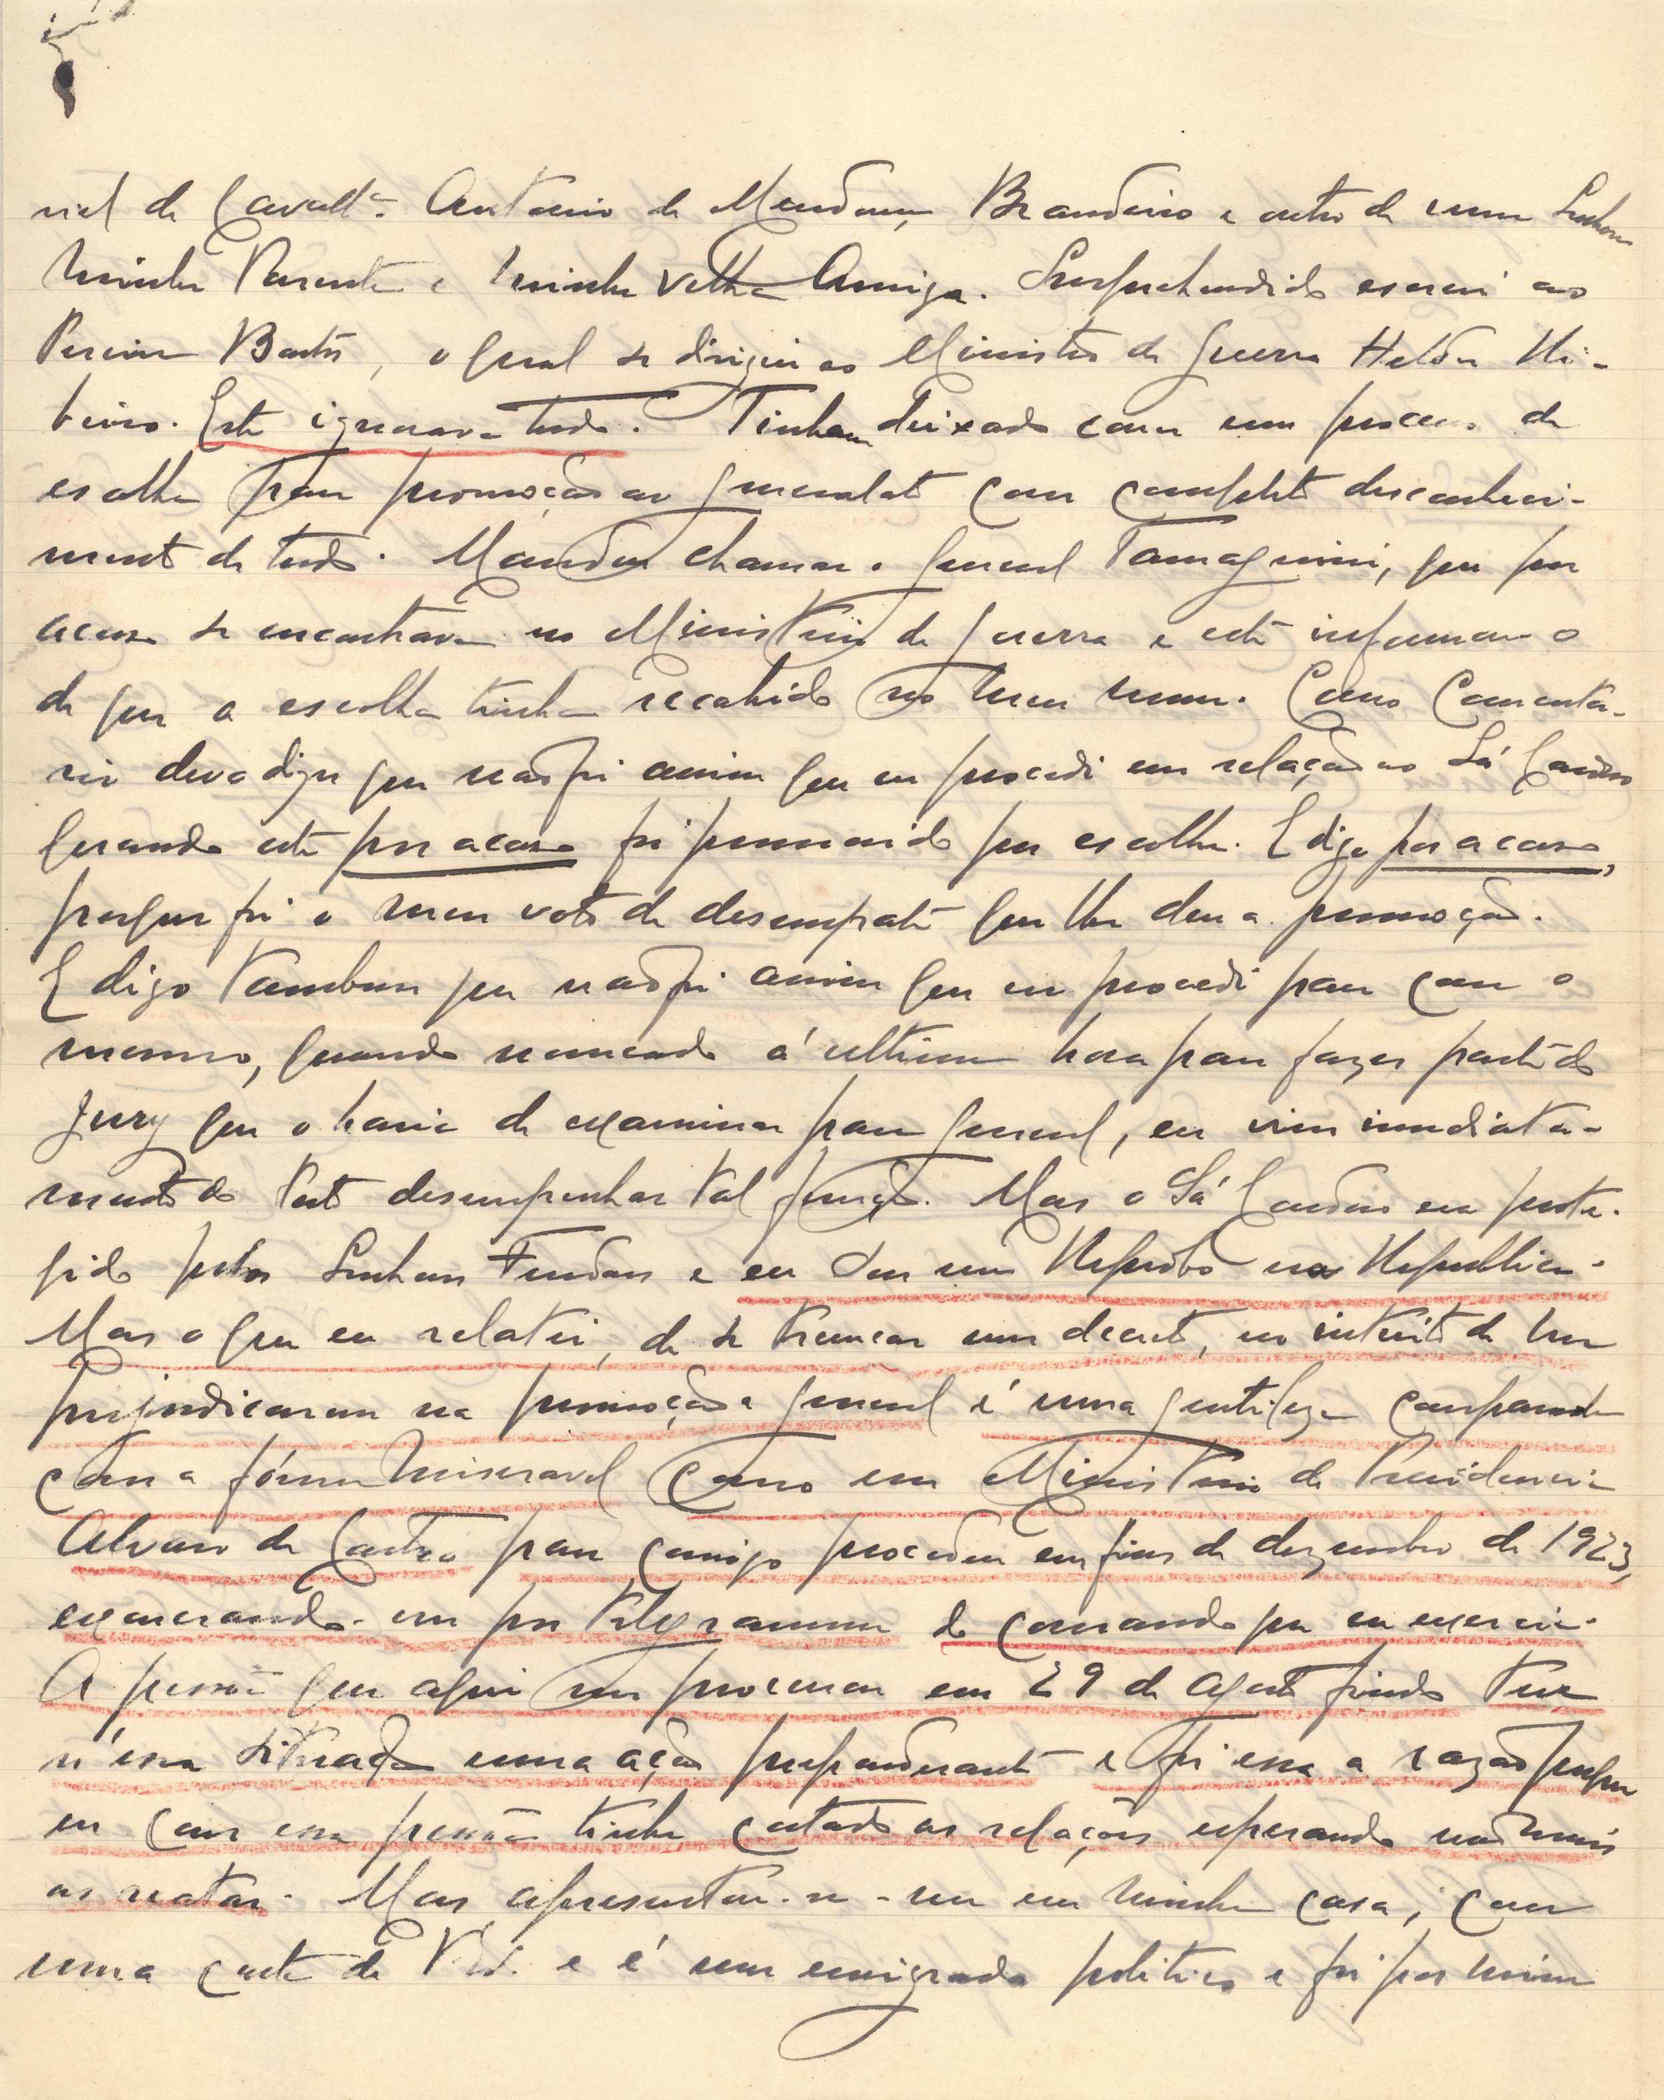 nel de Cavallª. Antonio de Mendonça Brandeiro e outro de uma Senhora
Minha Parente e Minha Velha Amiga. Surprehendido escrevi ao
Pereira Bastos, o qual se dirigiu ao Ministro da Guerra Helder Ri-
beiro. Este ignorava tudo. Tinham deixado correr um processo de
escolha para promoção ao generalato com completo desconheci-
mento de tudo. Mandou chamar o general Tamagnini, que por
acaso se encontrava no Ministerio da Guerra e este informou-o
de que a escolha tinha recahido no meu nome. Como Comenta-
rio devo dizer que não foi assim que eu procedi em relação ao Sá Cardoso
quando este por acaso foi promovido por escolha. E digo por acaso,
porque foi o meu voto de desempate que lhe deu a promoção.
E digo tambem que não foi assim que eu procedi para com o
mesmo, quando nomeado á ultima hora para fazer parte do
Jury que o havia de examinar para general, eu vim immediata-
mente do Porto desempenhar tal função. Mas o Sá Cardoso era prote-
gido pelos Senhores Feudais e eu sou um Reprobo na Republica.
Mas o que eu relatei, de se truncar um decreto, no intuito de me
prejudicarem na promoção a general é uma gentileza comparada
com a fórma Miseravel como um Ministerio da Presidencia
Alvaro de Castro para comigo procedeu em fins de dezembro de 1923,
exonerando-me por telegramma do comando que eu exercia.
A pessoa que aqui me procurou em 29 de Agosto findo teve
n'essa situação uma ação preponderante e foi essa a razão porque
eu com essa pessoa tinha cortado as relações esperando não mais
as reatar. Mas apresentou-se-me em minha casa, com
uma carta de V. e é um emigrado politico e foi por mim